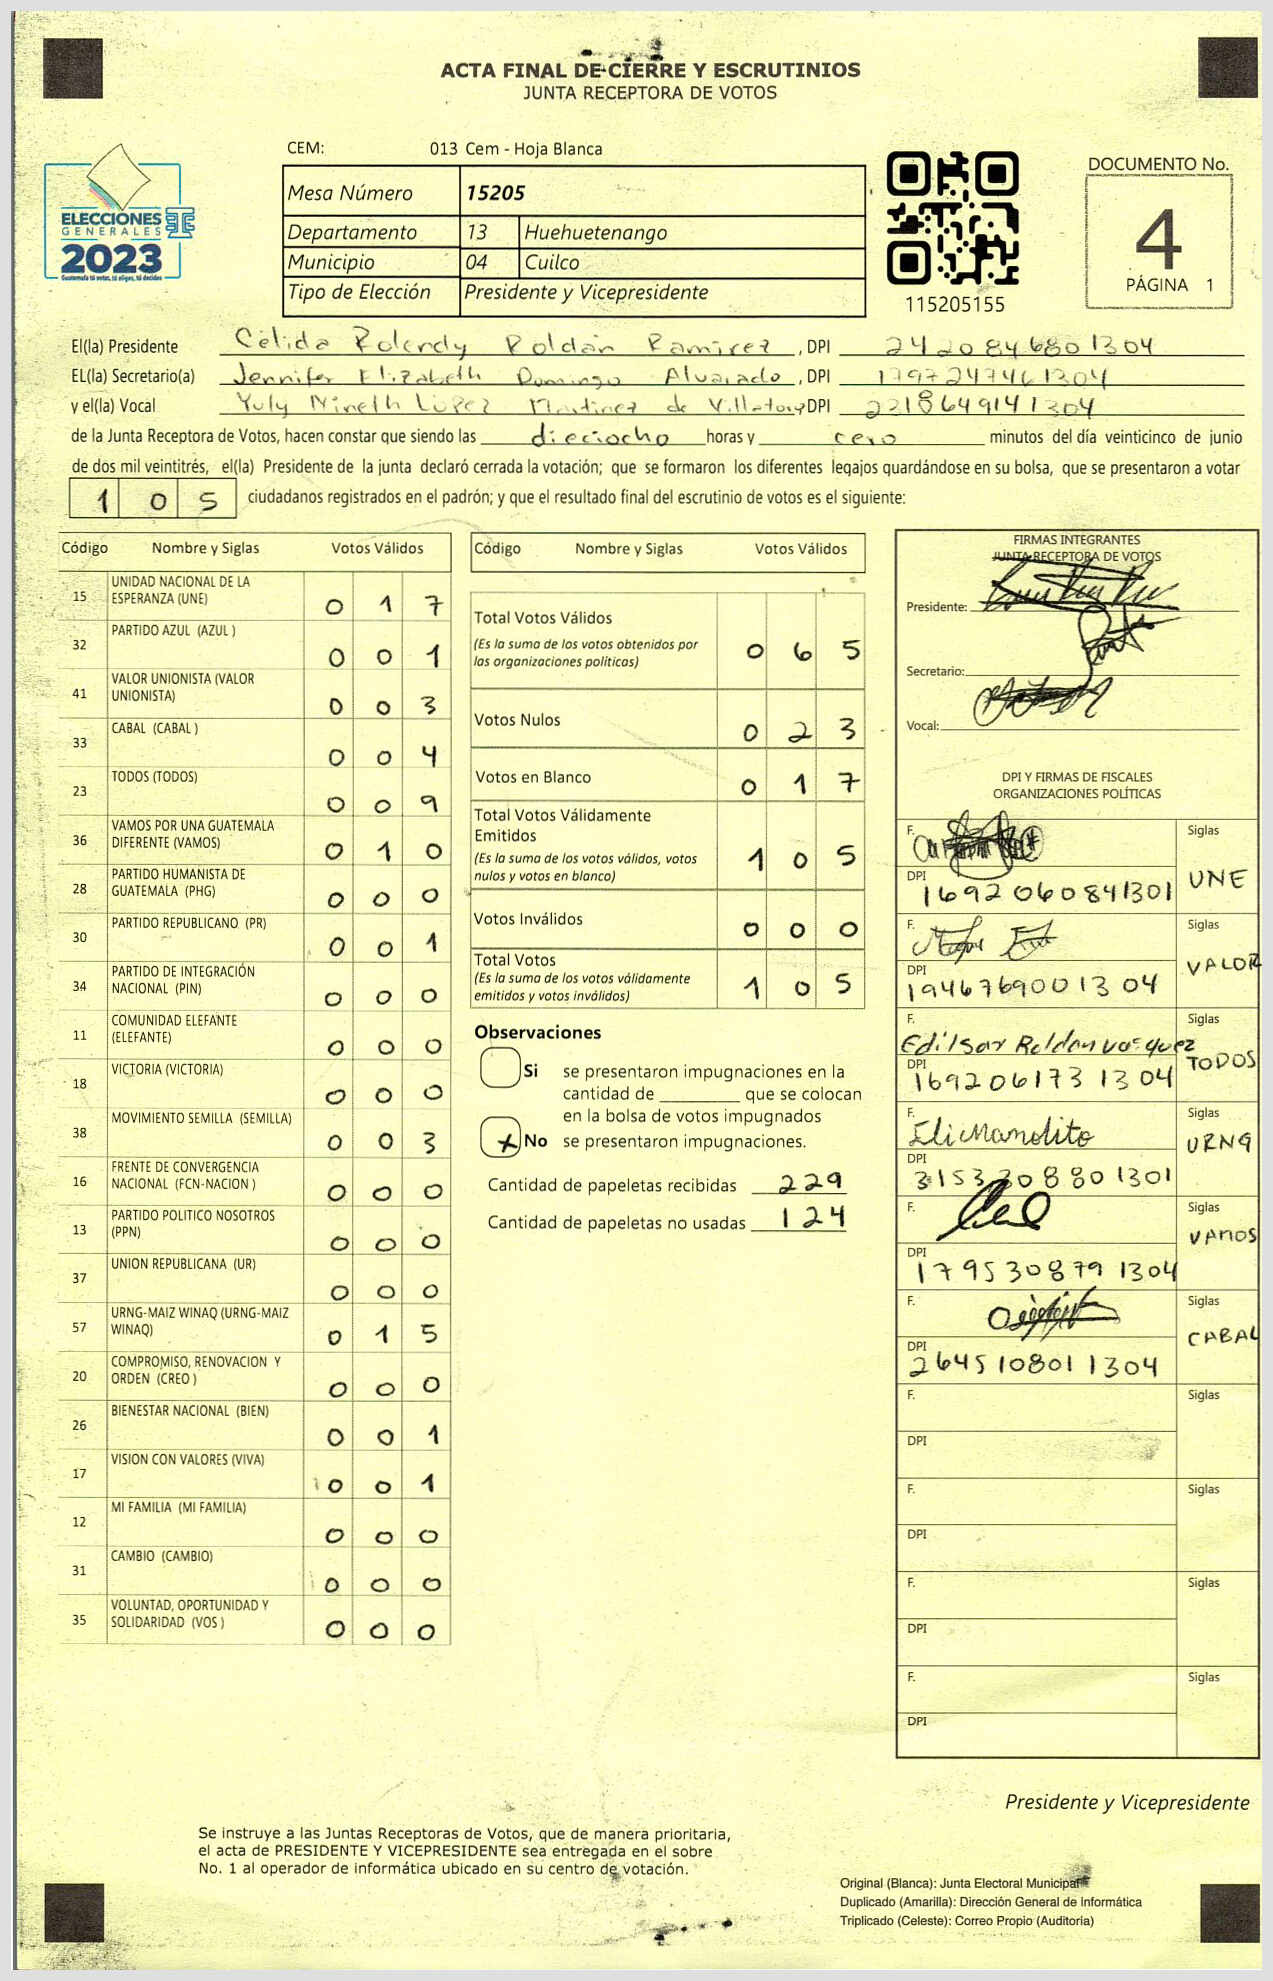 ACTA FINAL DE CIERRE Y ESCRUTINIOS
JUNTA RECEPTORA DE VOTOS
CEM: 013 Cem - Hoja Blanca
ELECCIONES
GENERALES
2023
Guatemala tú votas, tú eliges, tú decides
Mesa Número 15205
Departamento 13 Huehuetenango
Municipio 04 Cuilco
Tipo de Elección Presidente y Vicepresidente
115205155
DOCUMENTO No.
4
PÁGINA 1
El(la) Presidente Celida Rolendy Roldán Ramirez, DPI 2420846801304
EL(la) Secretario(a) Jennifer Elizabeth Domingo Alvarado, DPI 1797247461304
y el(la) Vocal Yuly Mineth López Martinez de Villatoro DPI 2218649141304
de la Junta Receptora de Votos, hacen constar que siendo las dieciocho horas y cero minutos del día veinticinco de junio
de dos mil veintitrés, el(la) Presidente de la junta declaró cerrada la votación; que se formaron los diferentes legajos guardándose en su bolsa, que se presentaron a votar
1 0 5 ciudadanos registrados en el padrón; y que el resultado final del escrutinio de votos es el siguiente:
Código Nombre y Siglas Votos Válidos
15 UNIDAD NACIONAL DE LA ESPERANZA (UNE) 0 1 7
32 PARTIDO AZUL (AZUL ) 0 0 1
41 VALOR UNIONISTA (VALOR UNIONISTA) 0 0 3
33 CABAL (CABAL ) 0 0 4
23 TODOS (TODOS) 0 0 9
36 VAMOS POR UNA GUATEMALA DIFERENTE (VAMOS) 0 1 0
28 PARTIDO HUMANISTA DE GUATEMALA (PHG) 0 0 0
30 PARTIDO REPUBLICANO (PR) 0 0 1
34 PARTIDO DE INTEGRACIÓN NACIONAL (PIN) 0 0 0
11 COMUNIDAD ELEFANTE (ELEFANTE) 0 0 0
18 VICTORIA (VICTORIA) 0 0 0
38 MOVIMIENTO SEMILLA (SEMILLA) 0 0 3
16 FRENTE DE CONVERGENCIA NACIONAL (FCN-NACION ) 0 0 0
13 PARTIDO POLITICO NOSOTROS (PPN) 0 0 0
37 UNION REPUBLICANA (UR) 0 0 0
57 URNG-MAIZ WINAQ (URNG-MAIZ WINAQ) 0 1 5
20 COMPROMISO, RENOVACION Y ORDEN (CREO ) 0 0 0
26 BIENESTAR NACIONAL (BIEN) 0 0 1
17 VISION CON VALORES (VIVA) 0 0 1
12 MI FAMILIA (MI FAMILIA) 0 0 0
31 CAMBIO (CAMBIO) 0 0 0
35 VOLUNTAD, OPORTUNIDAD Y SOLIDARIDAD (VOS ) 0 0 0
Código Nombre y Siglas Votos Válidos
Total Votos Válidos 0 6 5
(Es la suma de los votos obtenidos por
las organizaciones políticas)
Votos Nulos 0 2 3
Votos en Blanco 0 1 7
Total Votos Válidamente
Emitidos 1 0 5
(Es la suma de los votos válidos, votos
nulos y votos en blanco)
Votos Inválidos 0 0 0
Total Votos 1 0 5
(Es la suma de los votos válidamente
emitidos y votos inválidos)
Observaciones
Si se presentaron impugnaciones en la
cantidad de ________ que se colocan
en la bolsa de votos impugnados
x No se presentaron impugnaciones.
Cantidad de papeletas recibidas 229
Cantidad de papeletas no usadas 124
FIRMAS INTEGRANTES
JUNTA RECEPTORA DE VOTOS
Presidente:
Secretario:
Vocal:
DPI Y FIRMAS DE FISCALES
ORGANIZACIONES POLÍTICAS
F. Siglas
DPI 1692060841301 UNE
F. Siglas
DPI 1946769001304 VALOR
F. Edilsar Roldan Vasquez Siglas
DPI 1692061731304 TODOS
F. Siglas
DPI 3153308801301 URNG
F. Siglas
DPI 1795308791304 VAMOS
F. Siglas
DPI 2645108011304 CABAL
F. Siglas
DPI
F. Siglas
DPI
F. Siglas
DPI
F. Siglas
DPI
Presidente y Vicepresidente
Se instruye a las Juntas Receptoras de Votos, que de manera prioritaria,
el acta de PRESIDENTE Y VICEPRESIDENTE sea entregada en el sobre
No. 1 al operador de informática ubicado en su centro de votación.
Original (Blanca): Junta Electoral Municipal
Duplicado (Amarilla): Dirección General de Informática
Triplicado (Celeste): Correo Propio (Auditoria)